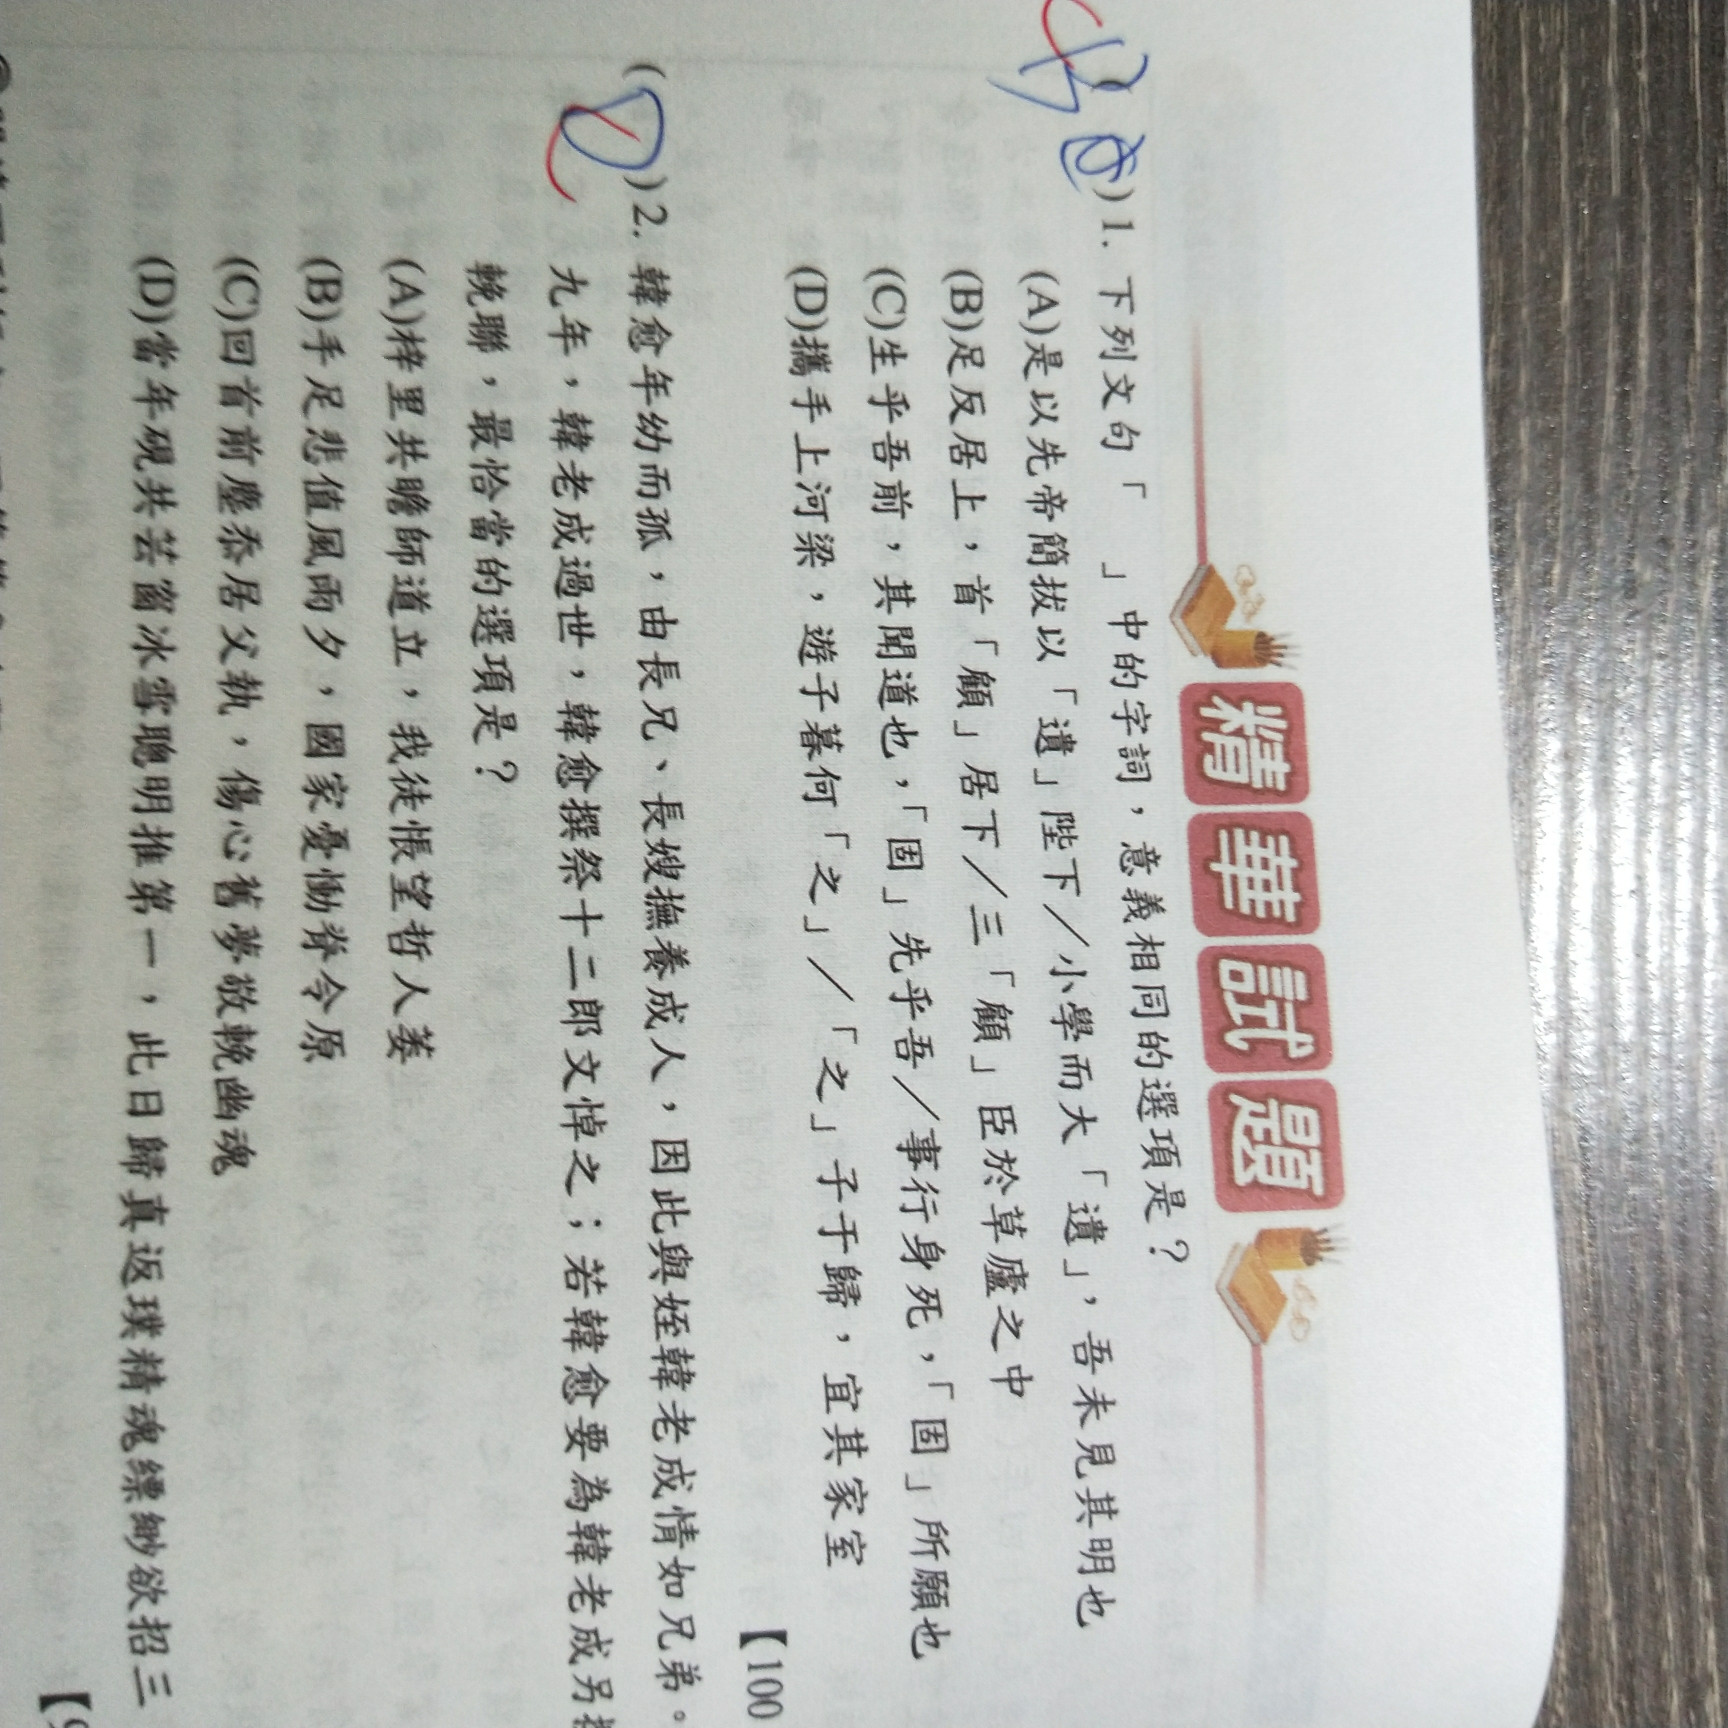 精華試題
)1. 下列文句「　　」中的字詞，意義相同的選項是？
(A)是以先帝簡拔以「遺」陛下／小學而大「遺」，吾未見其明也
(B)足反居上，首「顧」居下／三「顧」臣於草廬之中
(C)生乎吾前，其聞道也，「固」先乎吾／事行身死，「固」所願也
(D)攜手上河梁，遊子暮何「之」／「之」子于歸，宜其家室
【100
(D)2. 韓愈年幼而孤，由長兄、長嫂撫養成人，因此與姪韓老成情如兄弟。
九年，韓老成過世，韓愈撰祭十二郎文悼之；若韓愈要為韓老成另
輓聯，最恰當的選項是？
(A)梓里共瞻師道立，我徒悵望哲人萎
(B)手足悲值風雨夕，國家憂慟脊令原
(C)回首前塵忝居父執，傷心舊夢敬輓幽魂
(D)當年硯共芸窗冰雪聰明推第一，此日歸真返璞精魂縹緲欲招三
【9